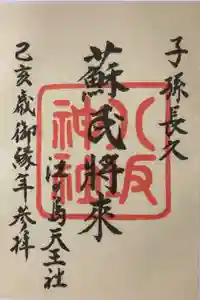 子孫長久
蘇民將來
八坂神社
江の島天王社
己亥歳御縁年参拝